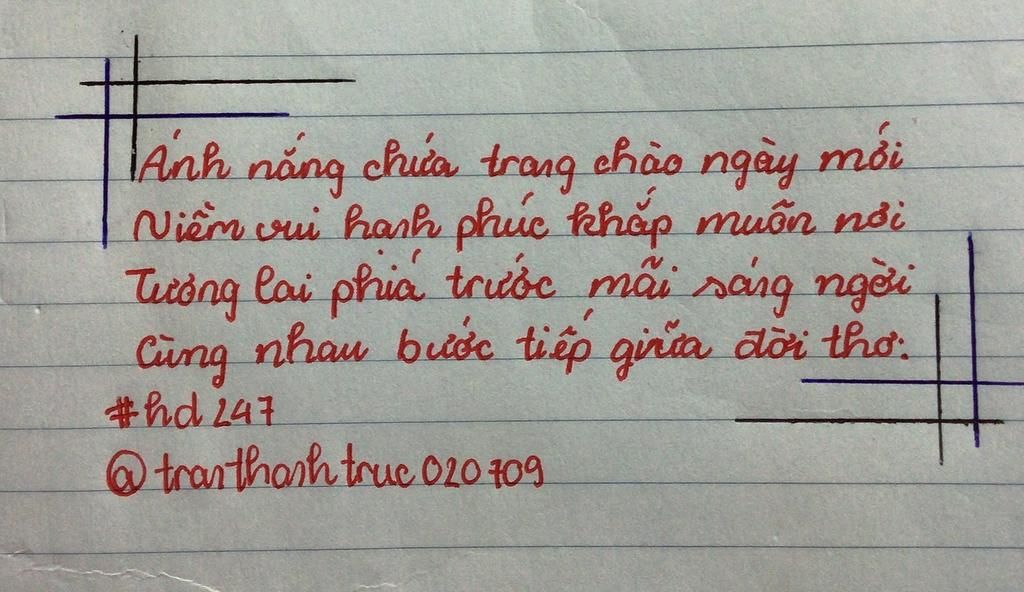 Ánh nắng chứa trang chào ngày mới
Niềm vui hạnh phúc khắp muôn nơi
Tương lai phía trước mãi sáng ngời
Cùng nhau bước tiếp giữa đời thơ.
#hd247
@tranthanhtruc020709